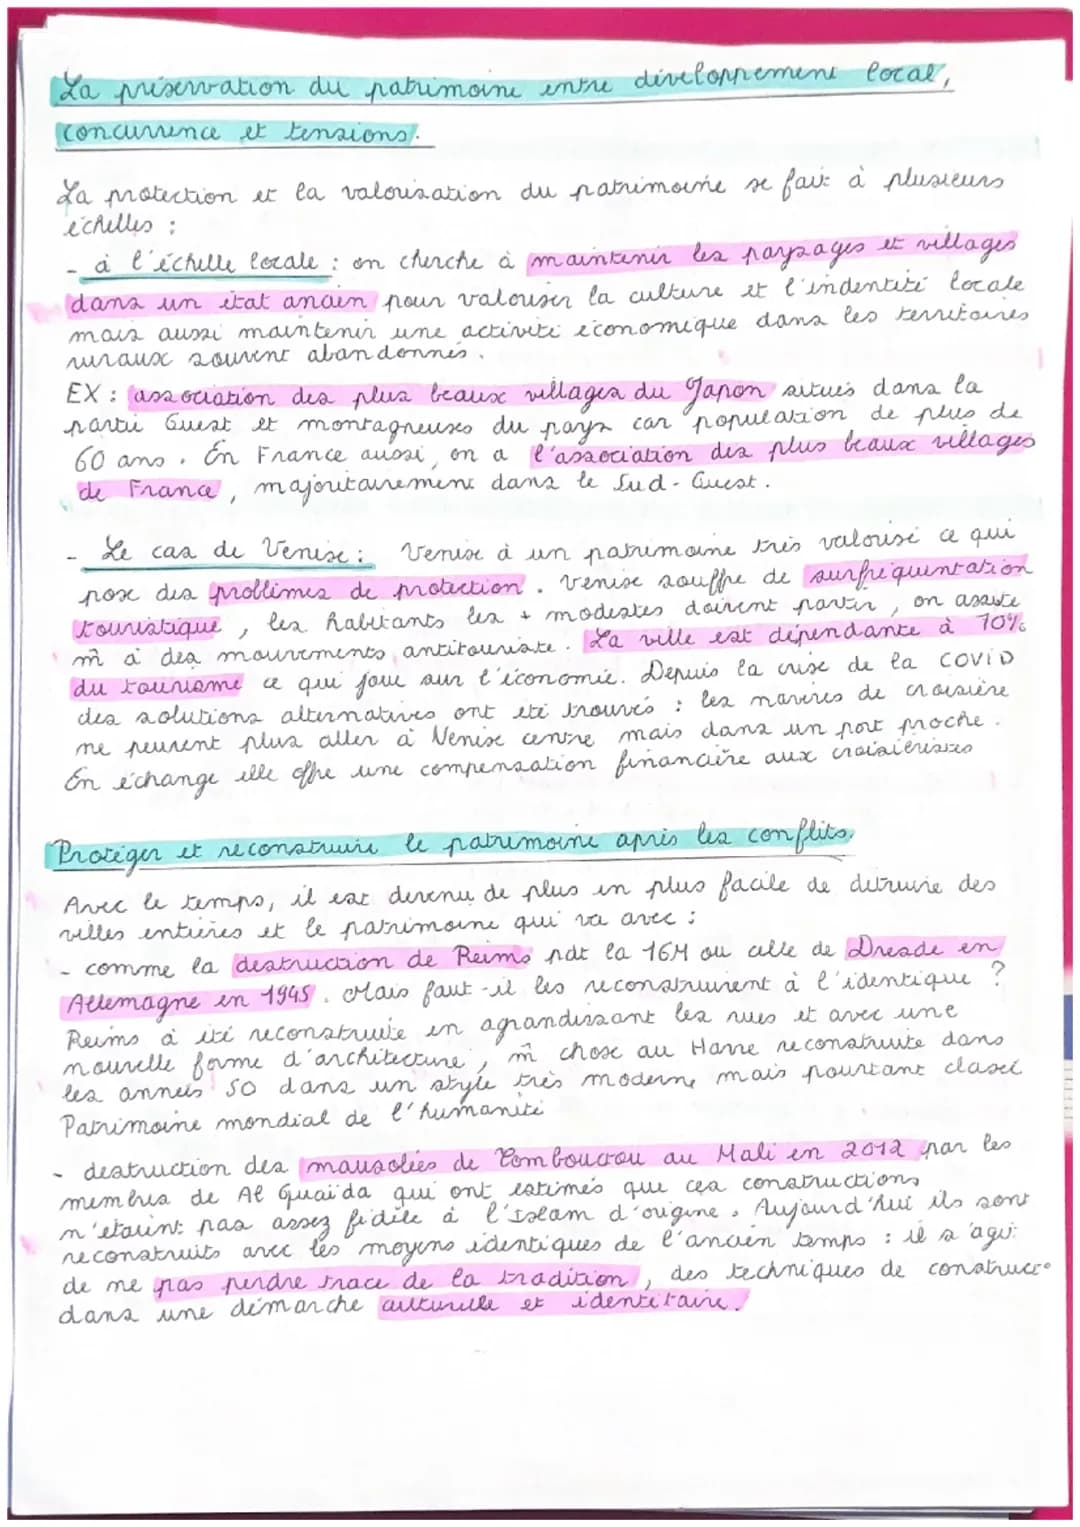 La préservation du patrimoine entre développement local,
concurrence et tensions.
La protection et la valorisation du patrimoine se fait à plusieurs
échelles :
- à l'échelle locale : on cherche à maintenir les paysages et villages
dans un état ancien pour valoriser la culture et l'indentité locale
mais aussi maintenir une activité économique dans les territoires
ruraux souvent abandonnés.
EX : association des plus beaux villages du Japon situés dans la
partie Ouest et montagneuses du pays car population de plus de
60 ans. En France aussi, on a l'association des plus beaux villages
de France, majoritairement dans le Sud-Ouest.
- Le cas de Venise : Venise à un patrimoine très valorisé ce qui
pose des problèmes de protection. Venise souffre de surfréquentation
touristique, les habitants les + modestes doivent partir, on assiste
m̂ à des mouvements antitouriste. La ville est dépendante à 70%
du tourisme ce qui joue sur l'économie. Depuis la crise de la COVID
des solutions alternatives ont été trouvés : les navires de croisière
ne peuvent plus aller à Venise centre mais dans un port proche.
En échange elle offre une compensation financière aux croisiéristes
Protéger et reconstruire le patrimoine après les conflits.
Avec le temps, il est devenu de plus en plus facile de détruire des
villes entières et le patrimoine qui va avec :
- comme la destruction de Reims pdt la 1GM ou celle de Dresde en
Allemagne en 1945. Mais faut-il les reconstruirent à l'identique ?
Reims à été reconstruite en agrandissant les rues et avec une
nouvelle forme d'architecture, m̂ chose au Havre reconstruite dans
les années 50 dans un style très moderne mais pourtant classé
Patrimoine mondial de l'humanité
- destruction des mausolées de Tombouctou au Mali en 2012 par les
membres de Al Quaïda qui ont estimés que ces constructions
n'étaient pas assez fidèle à l'Islam d'origine. Aujourd'hui ils sont
reconstruits avec les moyens identiques de l'ancien temps : il s'agit
de ne pas perdre trace de la tradition, des techniques de construct°
dans une démarche culturelle et identitaire.